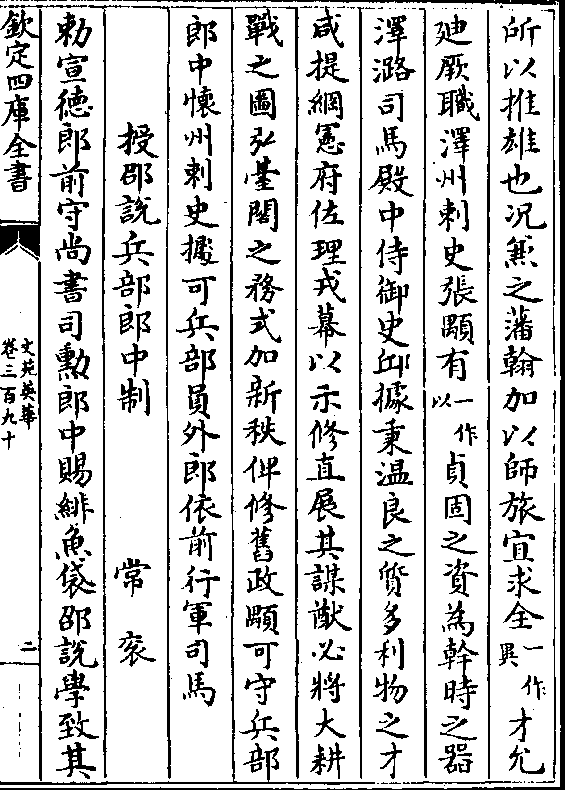 所以推雄也况兼之藩翰加以師旅宜求全一作異才允
廸厥職澤州刺史張顒有一作以貞固之資為幹時之器
澤潞司馬殿中侍御史邱據秉温良之質多利物之才
咸提綱憲府佐理戎幕以示修直展其謀猷必將大耕
戰之圖弘臺閣之務式加新秩俾修舊政顒可守兵部
郎中懷州刺史據可兵部員外郎依前行軍司馬
授邵說兵部郎中制 常衮
勅宣德郎前守尚書司勲郎中賜緋魚袋邵說學致其
欽定四庫全書
文苑英華
卷三百九十
二